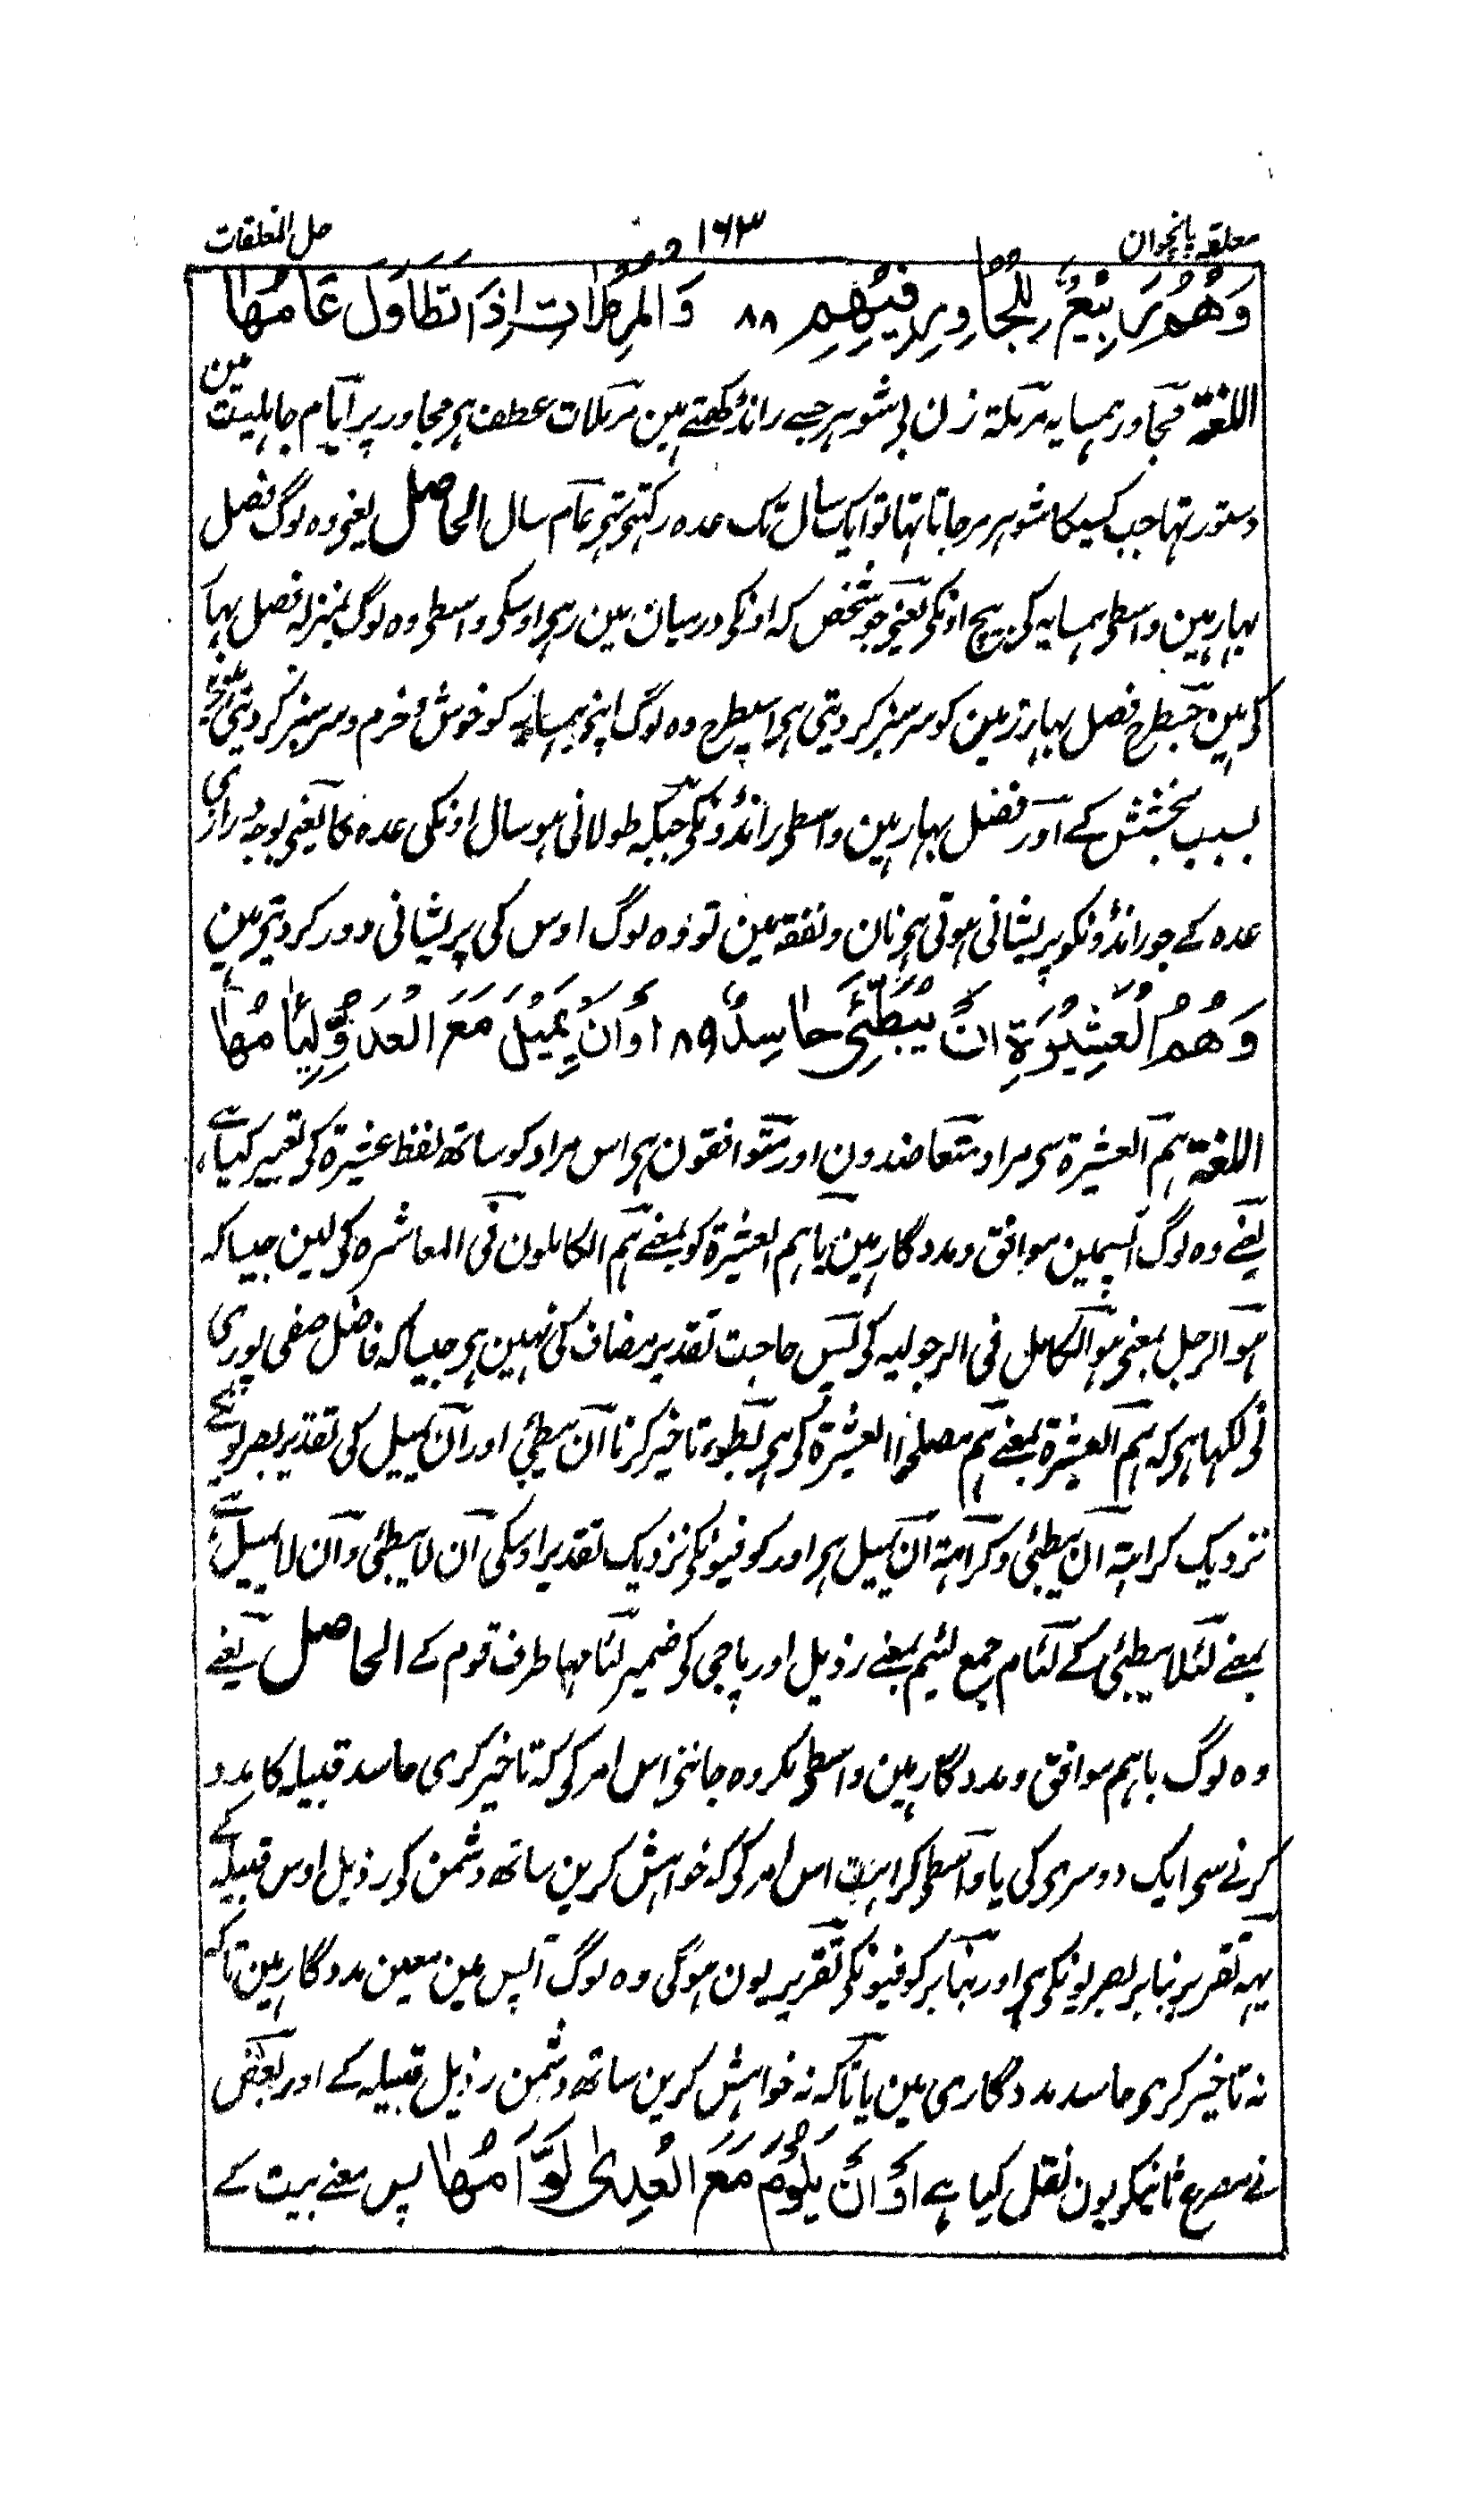 معلقہ پانچوان ۱۶۳ حل المعلقات
وَهُمُ رَبِيْعٌ لِلْمُجَاوِرِ فِيْهِمِ ۸۸ وَالْمُرْمِلَاتِ اِذَا تَطَاوَلَ عَامُهَا
اللغۃ مجاور ہمسایہ مرملۃ زن بی شوہر جسے رانڈ کہتے ہین مرملات عطف ہی مجاور پر ایام جاہلیت مین
دستور تہا جب کسیکا شوہر مرجاتا تہا تو ایک سال تک عدہ رکہتی تہی عام سال الحاصل یعنی وہ لوگ فصل
بہار ہین واسطی ہمسایہ کی بیچ اونکی یعنی جو شخص کہ اونکی درمیان مین رہی اوسکی واسطی وہ لوگ بمنزلہ فصل بہار
کی ہین جسطرح فصل بہار زمین کو سرسبز کر دیتی ہی اسیطرح وہ لوگ اپنی ہمسایہ کو خوش و خرم و سرسبز کر دیتی
بسبب بخشش کے اور فصل بہار ہین واسطی رانڈونکی جبکہ طولانی ہو سال اونکی عدہ کا یعنی بوجہ درازی
عدہ کے جو رانڈونکو پریشانی ہوتی ہی نان و نفقہ مین تو وہ لوگ اوس کی پریشانی دور کر دیتی ہین
وَهُمُ الْعَشِيْرَةِ اَنْ يُبَطِّئَ حَاسِدٌ ۸۹ اَوْ اَنْ يَمِيْلَ مَعَ الْعَدُوِّ لِئَامُهَا
اللغۃ ہم العشیرۃ سی مراد متعاضدون اور متوافقون ہی اس مراد کو ساتھ لفظ عشیرۃ کی تعبیر کیا ہے
یعنے وہ لوگ آپسمین موافق و مددگار ہین یا ہم العشیرۃ کو بمعنے ہم الکاملون فی المعاشرہ کی لین جیسا کہ
ہو الرجل بمعنی ہو الکامل فی الرجولیہ کی پس حاجت تقدیر مضاف کی نہین ہی جیسا کہ فاضل صفی پوری
نی لکہا ہی کہ ہم العشیرۃ بمعنے ہم مصلحوا العشیرۃ کی ہی بطوء تاخیر کرنا ان یبطئ اور ان یمیل کی تقدیر بصریونکے
نزدیک کراہتہ ان یبطئ و کراہتہ ان یمیل ہی اور کوفیونکی نزدیک تقدیر اوسکی ان لا یبطئ و ان لا یمیل ہے
بمعنے لئلا یبطئ کے لئام جمع لئیم بمعنے رذیل اور پاجی کی ضمیر لئامہا طرف قوم کے الحاصل یعنے
وہ لوگ باہم موافق و مددگار ہین واسطی مکروہ جاننی اس امر کی کہ تاخیر کری حاسد قبیلہ کا مدد
کرنے سی ایک دوسری کی یا واسطی کراہیت اس امر کی کہ خواہش کرین ساتھ دشمن کی رذیل اوس قبیلہ کے
یہہ تقریر بنا بر بصریونکی ہی اور بنا بر کوفیونکی تقریر یون ہوگی وہ لوگ آپس مین معین مددگار ہین تا کہ
نہ تاخیر کری حاسد مددگاری مین یا تا کہ نہ خواہش کرین ساتھ دشمن رذیل قبیلہ کے اور بعض
نے مصرع ثانیکو یون نقل کیا ہے اَوْ اَنْ يَلُوْمَ مَعَ الْعِدىٰ لَوَّامُهَا پس معنے بیت کے